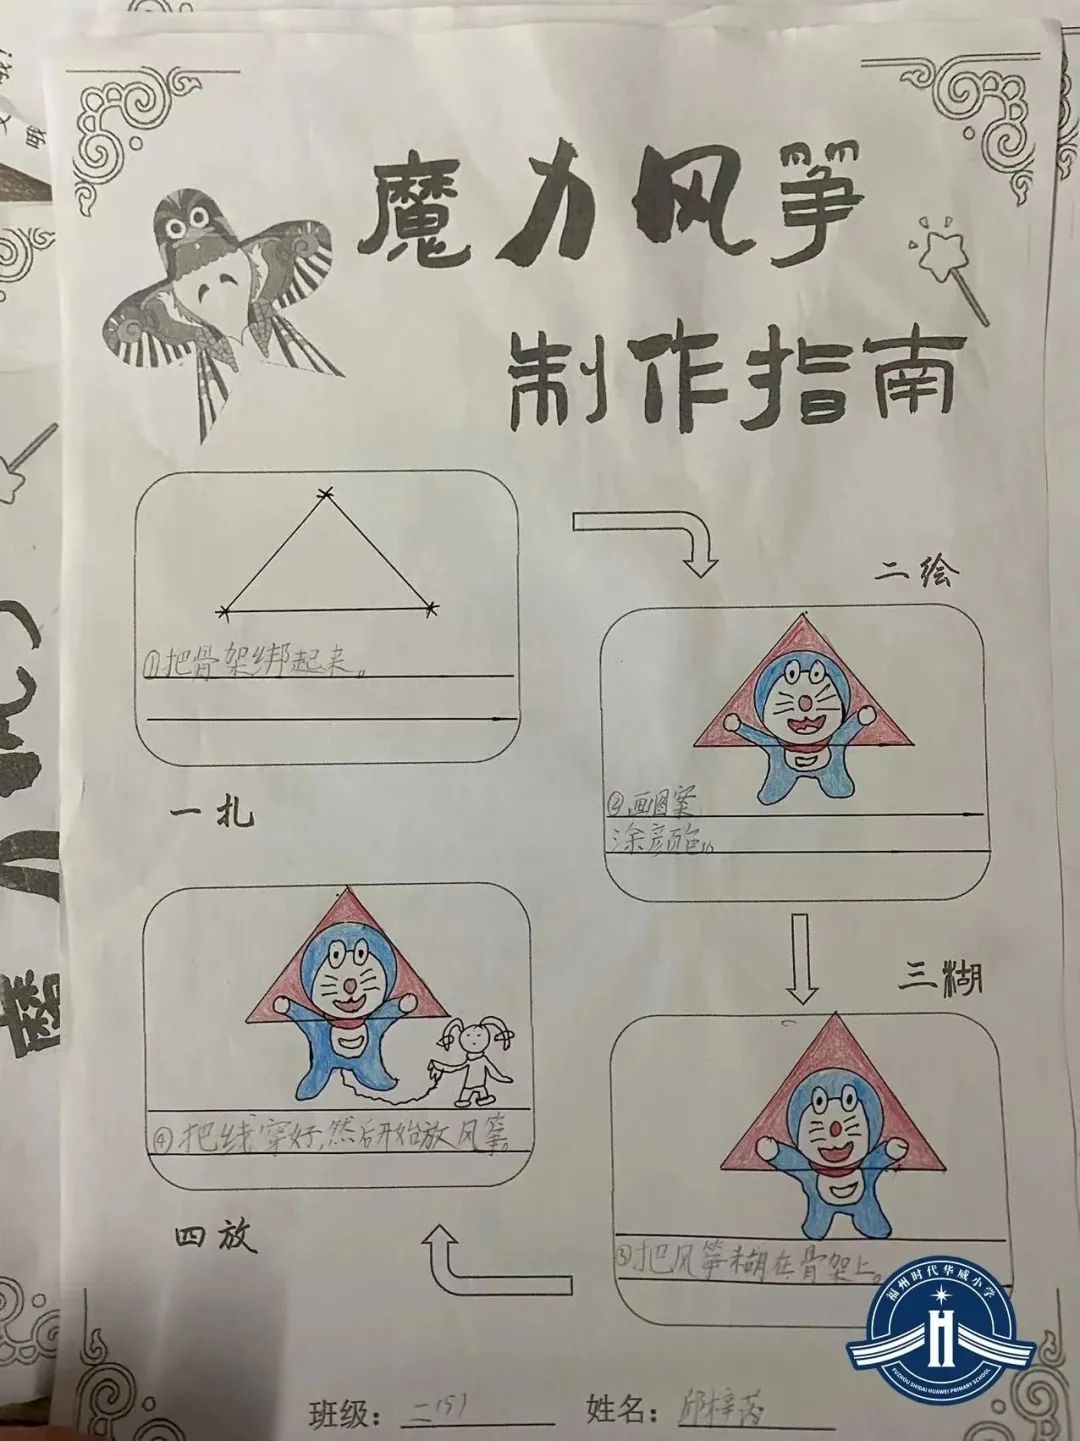 魔力风筝
制作指南
①把骨架绑起来。
一扎
二绘
②画图案
涂颜色。
三糊
③把风筝糊在骨架上。
④把线穿好,然后开始放风筝。
四放
班级：二(5)
姓名：邱梓
福州时代华威小学
FUZHOU SHIDAI HUAWEI PRIMARY SCHOOL